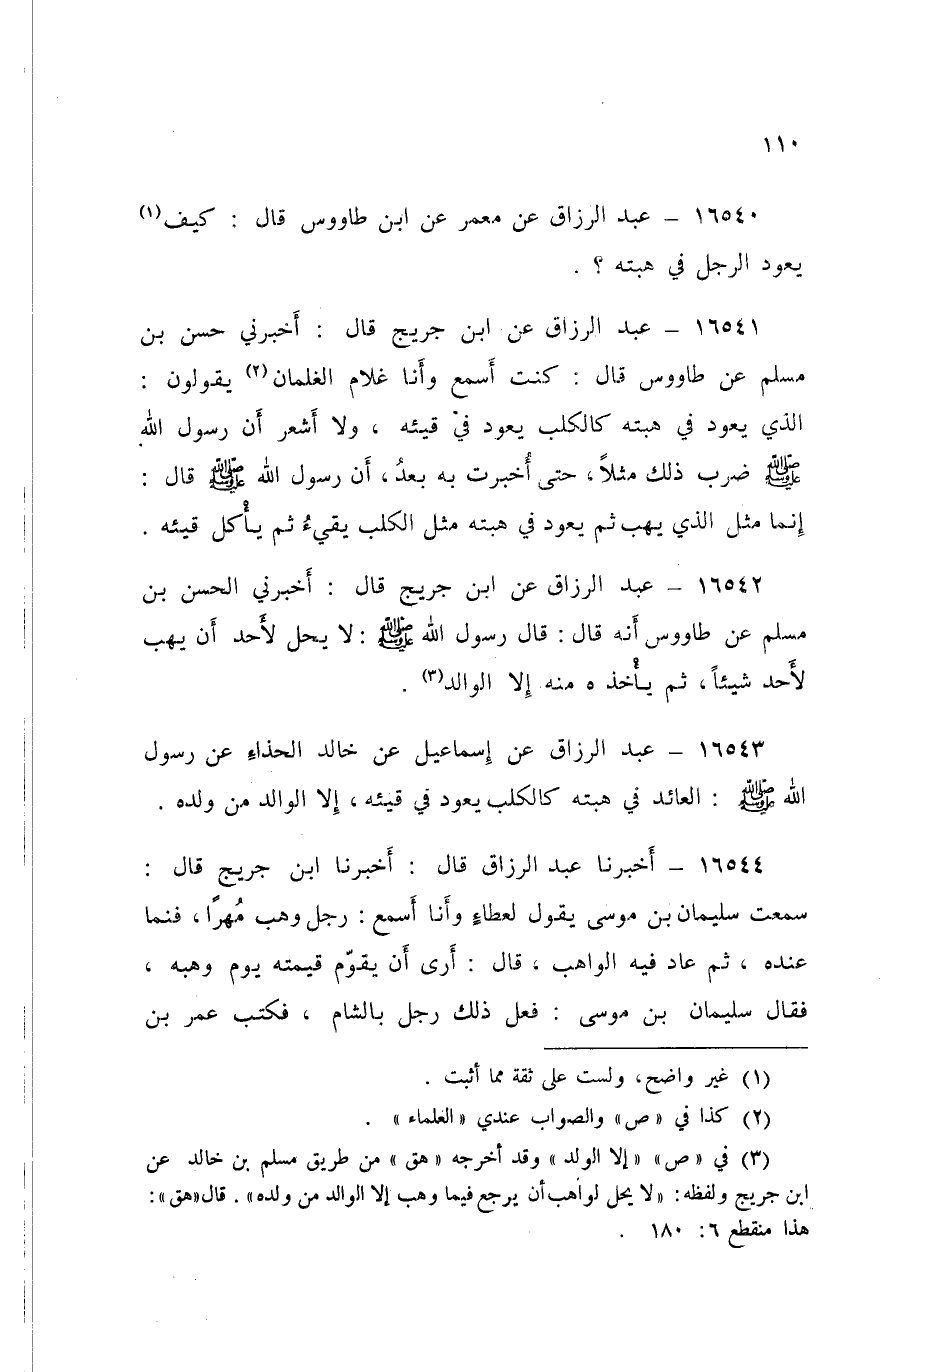 ١١٠
١٦٥٤٠ – عبد الرزاق عن معمر عن ابن طاووس قال : كيف(١)
يعود الرجل في هبته ؟ .
١٦٥٤١ – عبد الرزاق عن ابن جريج قال : أخبرني حسن بن
مسلم عن طاووس قال : كنت أسمع وأنا غلام الغلمان(٢) يقولون :
الذي يعود في هبته كالكلب يعود في قيئه ، ولا أشعر أن رسول الله
ﷺ ضرب ذلك مثلاً ، حتى أُخبرت به بعدُ ، أن رسول الله ﷺ قال :
إنما مثل الذي يهب ثم يعود في هبته مثل الكلب يقيءُ ثم يأكل قيئه .
١٦٥٤٢ – عبد الرزاق عن ابن جريج قال : أخبرني الحسن بن
مسلم عن طاووس أنه قال : قال رسول الله ﷺ : لا يحل لأحد أن يهب
لأحد شيئاً ، ثم يأخذ ه منه إلا الوالد(٣) .
١٦٥٤٣ – عبد الرزاق عن إسماعيل عن خالد الحذاءِ عن رسول
الله ﷺ : العائد في هبته كالكلب يعود في قيئه ، إلا الوالد من ولده .
١٦٥٤٤ – أخبرنا عبد الرزاق قال : أخبرنا ابن جريج قال :
سمعت سليمان بن موسى يقول لعطاءٍ وأنا أسمع : رجل وهب مُهراً ، فنما
عنده ، ثم عاد فيه الواهب ، قال : أرى أن يقوّم قيمته يوم وهبه ،
فقال سليمان بن موسى : فعل ذلك رجل بالشام ، فكتب عمر بن
(١) غير واضح ، ولست على ثقة مما أثبت .
(٢) كذا في « ص » والصواب عندي « العلماء » .
(٣) في « ص » « إلا الولد » وقد أخرجه « هق » من طريق مسلم بن خالد عن
ابن جريج ولفظه : « لا يحل لواهب أن يرجع فيما وهب إلا الوالد من ولده » . قال «هق» :
هذا منقطع ٦ : ١٨٠ .